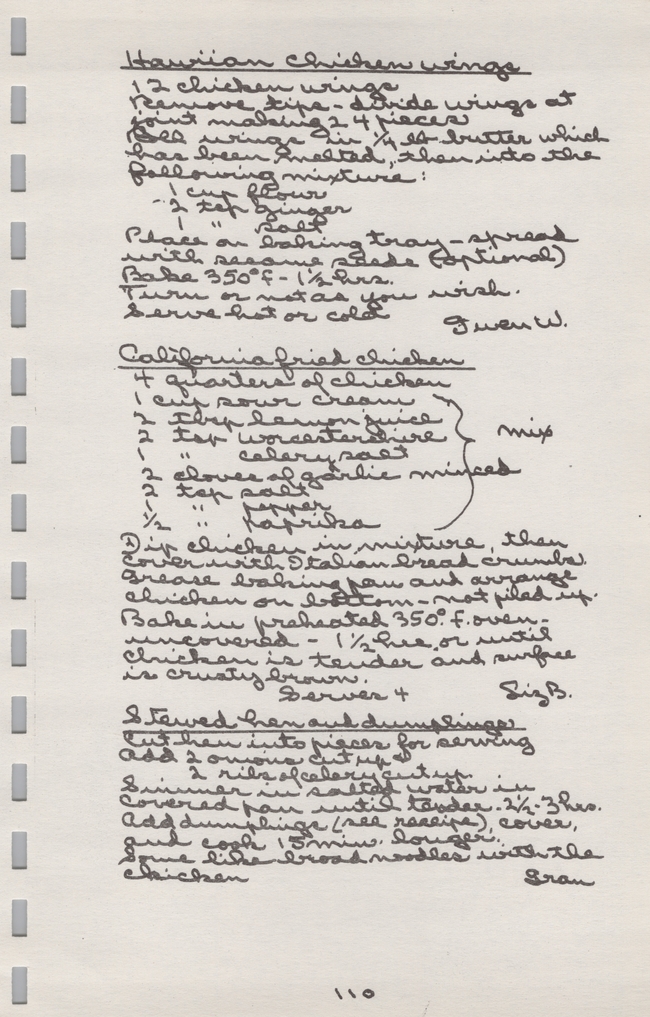 Hawiian Chicken wings
12 chicken wings
Remove tips - divide wings at
joint making 24 pieces
Roll wings in 1/4 lb butter which
has been melted, then into the
following mixture:
1 cup flour
2 tsp ginger
1 " salt
Place on baking tray - spread
with sesame seeds (optional)
Bake 350° f - 1 1/2 hrs.
Turn or not as you wish.
Serve hot or cold
Gwen W.
California fried chicken
4 quarters of chicken
1 cup sour cream
2 tbsp lemon juice
2 tsp worcestershire
mix
1 " celery salt
2 cloves of garlic minced
2 tsp salt
1 " pepper
1/2 " paprika
Dip chicken in mixture, then
cover with Italian bread crumbs.
Grease baking pan and arrange
chicken on bottom - not piled up.
Bake in preheated 350° f. oven -
uncovered - 1 1/2 hrs, or until
chicken is tender and surface
is crusty brown.
Serves 4
Liz B.
Stewed hen and dumplings
Cut hen into pieces for serving
Add 2 onions cut up &
2 ribs of celery cut up.
Simmer in salted water in
covered pan until tender - 2 1/2 - 3 hrs.
Add dumplings (see receipe), cover,
and cook 15 min. longer.
Some like broad noodles with the
chicken
Gran
110